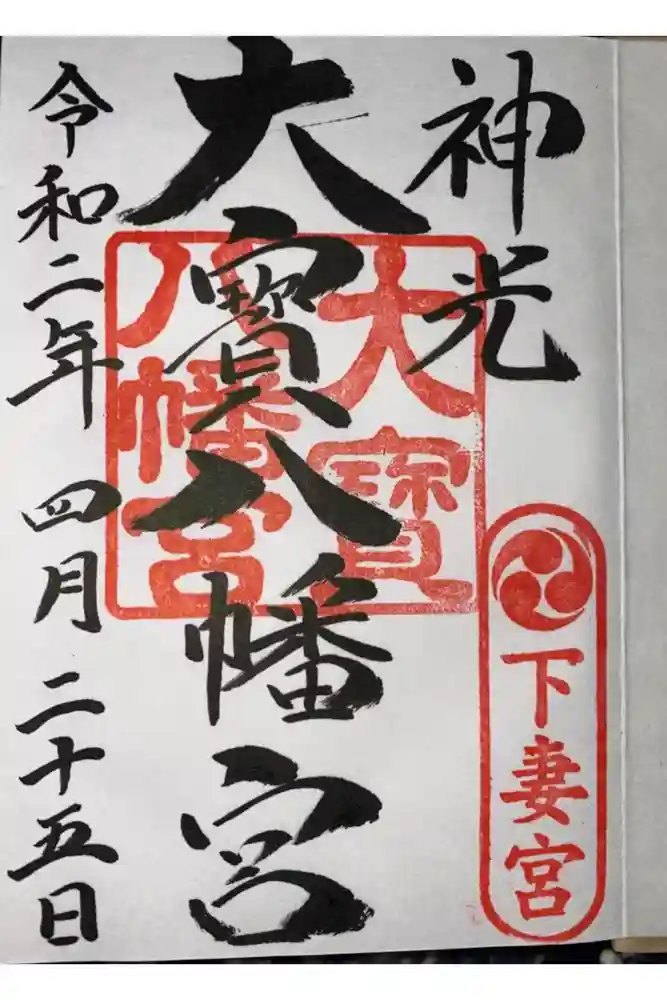 神光
大寳八幡宮
令和二年四月二十五日
大寳
八幡宮
下妻宮